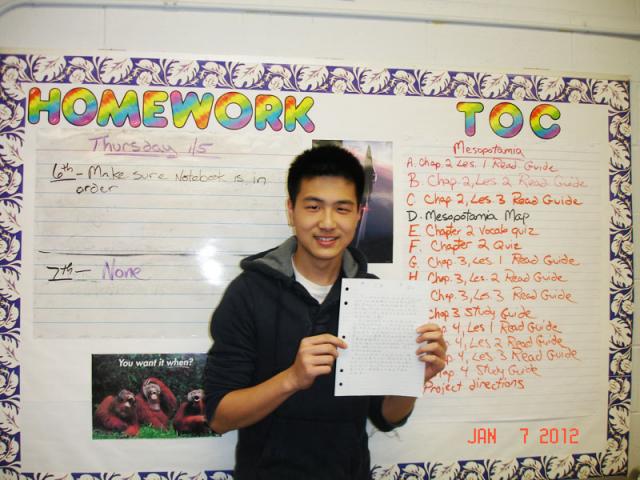 HOMEWORK
Thursday 1/5
6th - Make sure Notebook is in
order
7th - None
You want it when?
TOC
Mesopotamia
A. Chap. 2 Les. 1 Read Guide
B. Chap 2, Les 2 Read Guide
C. Chap 2, Les. 3 Read Guide
D. Mesopotamia Map
E. Chapter 2 Vocab quiz
F. Chapter 2 Quiz
G. Chap 3, Les. 1 Read Guide
H. Chap. 3, Les. 2 Read Guide
Chap. 3, Les. 3 Read Guide
Chap 3 Study Guide
4, Les 1 Read Guide
4, Les 2 Read Guide
4, Les 3 Read Guide
4 Study Guide
Project directions
JAN 7 2012